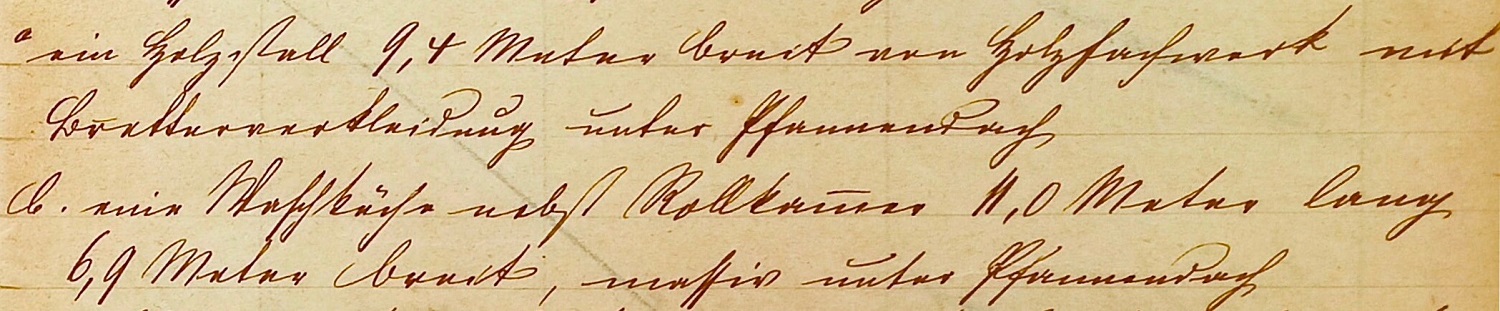 a ein Holzstall 9,4 Meter breit von Holzfachwerk mit
Bretterverkleidung unter Pfannendach
b. eine Waschküche nebst Rollkam̅er 11,0 Meter lang
6,9 Meter breit, massiv unter Pfannendach